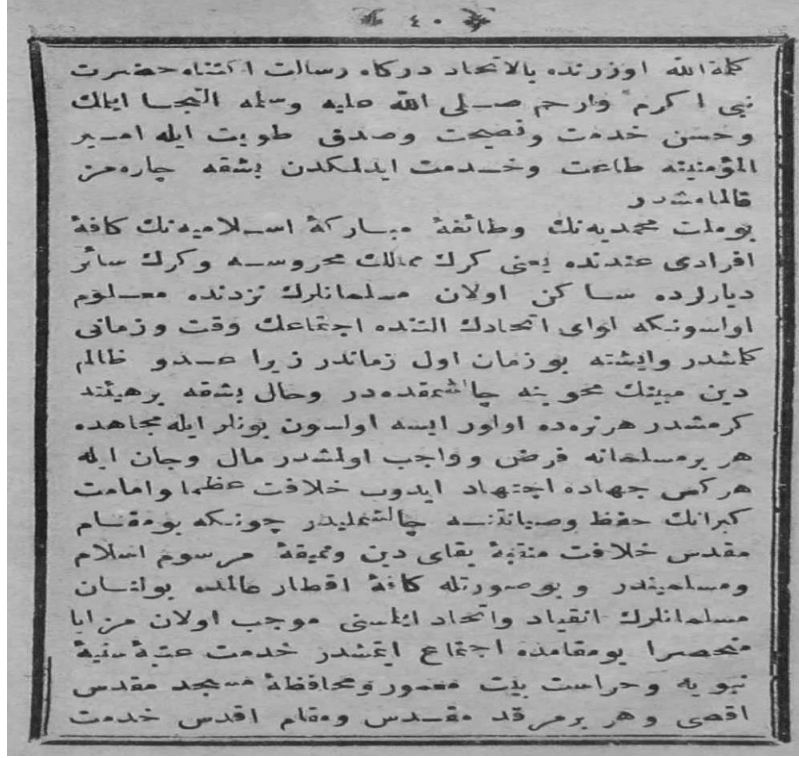 ٤٠
كلمة الله اوزرنده بالاتحاد دركاه رسالت اكتناه حضرت
نبی اكرم وارحم صلی الله علیه وسلمه التجا ایتمك
وحسن خدمت ونصیحت وصدق طویت ایله امیر
المؤمنینه طاعت وخدمت ایدلمكدن بشقه چاره‌مز
قالمامشدر
بوملت محمدیه‌نك وطائفهٔ مباركهٔ اسلامیه‌نك كافهٔ
افرادی عندنده یعنی كرك ممالك محروسه وكرك سائر
دیارلرده ساكن اولان مسلمانلرك نزدنده معلوم
اولسونكه لوای اتحادك التنده اجتماعك وقت وزمانی
كلشدر وایشته بو زمان اول زماندر زیرا عدو ظالم
دین مبینك محوینه چالشمقده‌در وحال بشقه برهیئته
كرمشدر هرنره‌ده اولور ایسه اولسون بونلر ایله مجاهده
هر برمسلمانه فرض وواجب اولمشدر مال وجان ایله
هركس جهاده اجتهاد ایدوب خلافت عظما وامامت
كبرانك حفظ وصیانتنه چالشملیدر چونكه بومقام
مقدس خلافت منقبهٔ بقای دین ووثیقهٔ مرسوم اسلام
ومسلمیندر و بوصورتله كافهٔ اقطار عالمده بولنان
مسلمانلرك انقیاد واتحاد ایتلسنی موجب اولان مزایا
منحصرا بومقامده اجتماع ایتمشدر خدمت عتبهٔ سنیهٔ
نبویه وحراست بیت معمور ومحافظهٔ مسجد مقدس
اقصی وهر برمرقد مقدس ومقام اقدس خدمت